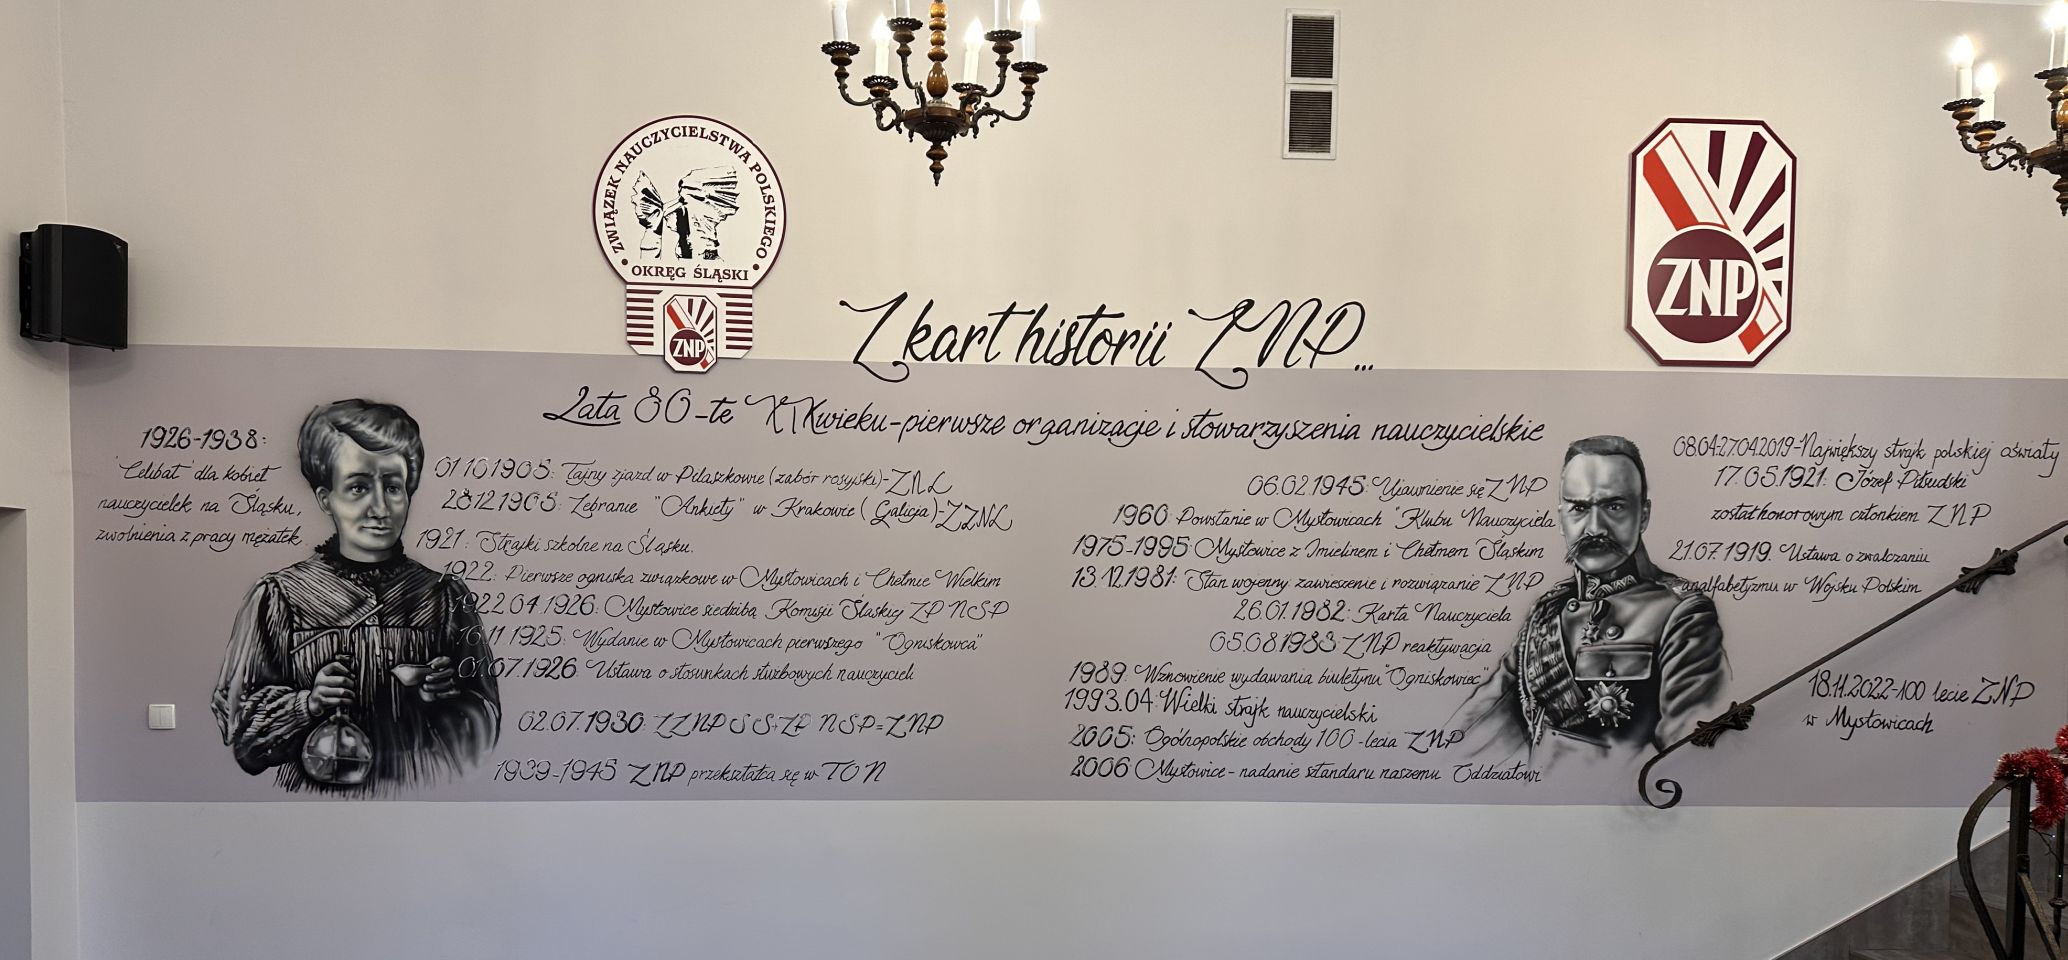 ZWIĄZEK NAUCZYCIELSTWA POLSKIEGO
OKRĘG ŚLĄSKI
ZNP
ZNP
Z kart historii ZNP...
Lata 80-te XIX wieku - pierwsze organizacje i stowarzyszenia nauczycielskie
1926-1938:
"Celibat" dla kobiet
nauczycielek na Śląsku,
zwolnienia z pracy mężatek
01.10.1905: Tajny zjazd w Pilaszkowie (zabór rosyjski)-ZNL
28.12.1905: Zebranie "Ankiety" w Krakowie (Galicja)-ZZNL
1921: Strajki szkolne na Śląsku.
1922: Pierwsze ogniska związkowe w Mysłowicach i Chełmie Wielkim
1922.04.1926: Mysłowice siedzibą Komisji Śląskiej ZP NSP
16.11.1925: Wydanie w Mysłowicach pierwszego "Ogniskowca"
01.07.1926: Ustawa o stosunkach służbowych nauczycieli
02.07.1930: ZZNP SS+ZP NSP=ZNP
1939-1945 ZNP przekształca się w TON
06.02.1945: Ujawnienie się ZNP
1960: Powstanie w Mysłowicach "Klubu Nauczyciela
1975-1995: Mysłowice z Imielinem i Chełmem Śląskim
13.12.1981: Stan wojenny zawieszenie i rozwiązanie ZNP
26.01.1982: Karta Nauczyciela
05.08.1983: ZNP reaktywacja
1989: Wznowienie wydawania biuletynu "Ogniskowiec"
1993.04: Wielki strajk nauczycielski
2005: Ogólnopolskie obchody 100-lecia ZNP
2006 Mysłowice - nadanie sztandaru naszemu Oddziałowi
08.04.27.04.2019-Największy strajk polskiej oświaty
17.05.1921: Józef Piłsudski
został honorowym członkiem ZNP
21.07.1919: Ustawa o zwalczaniu
analfabetyzmu w Wojsku Polskim
18.11.2022-100 lecie ZNP
w Mysłowicach